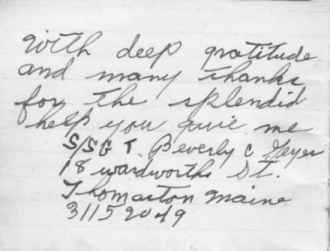 With deep gratitude
and many thanks
for the splendid
help you gave me
S/SGT Beverly C Geyer
18 wardworths St.
Thomaston Maine
31152049